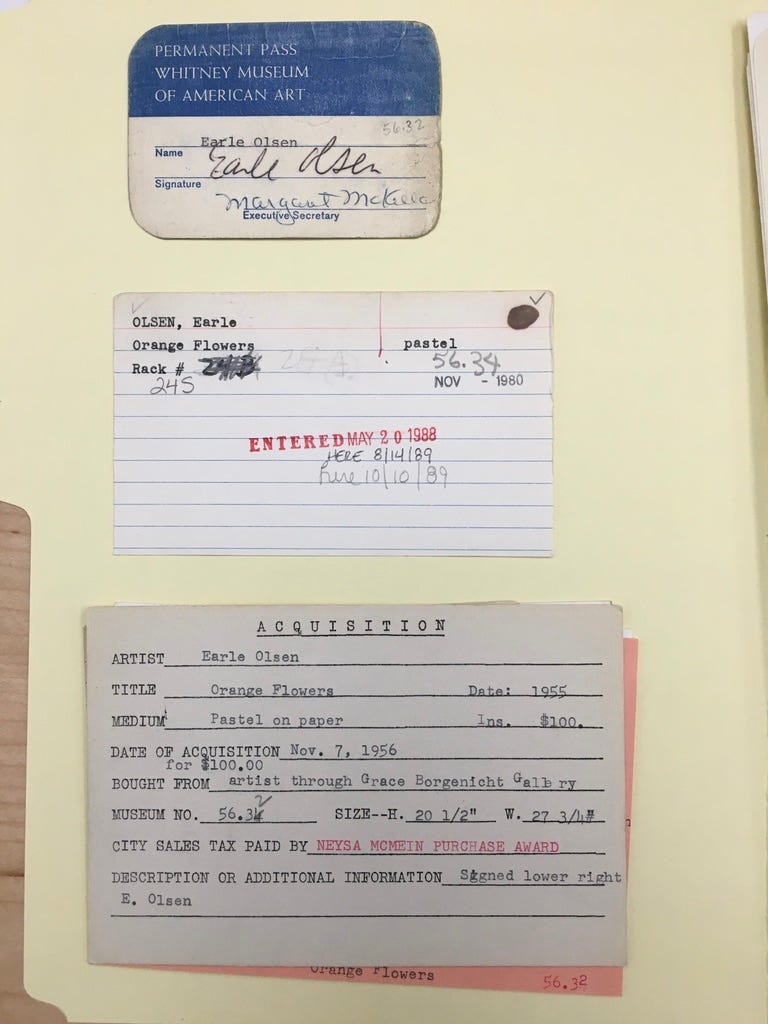 PERMANENT PASS
WHITNEY MUSEUM
OF AMERICAN ART
56.32
Earle Olsen
Name Earle Olsen
Signature Margaret
Executive Secretary
OLSEN, Earle
Orange Flowers pastel
Rack # 56.34
24S NOV - 1980
ENTERED MAY 20 1988
HERE 8/14/89
here 10/10/89
ACQUISITION
ARTIST Earle Olsen
TITLE Orange Flowers Date: 1955
MEDIUM Pastel on paper Ins. $100.
DATE OF ACQUISITION Nov. 7, 1956
for $100.00
BOUGHT FROM artist through Grace Borgenicht Gallery
2
MUSEUM NO. 56.34 SIZE--H. 20 1/2" W. 27 3/4"
CITY SALES TAX PAID BY NEYSA MCMEIN PURCHASE AWARD
DESCRIPTION OR ADDITIONAL INFORMATION Signed lower right
E. Olsen
Orange Flowers
56.32